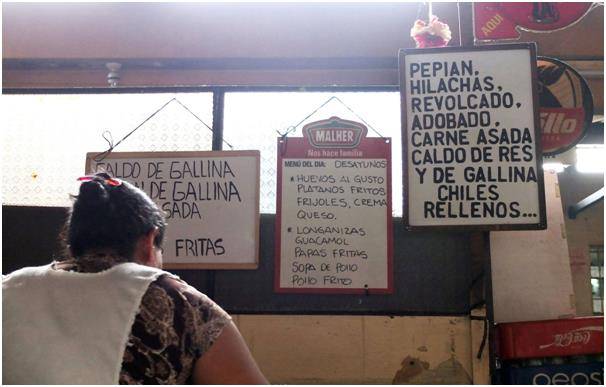 CALDO DE GALLINA
DE GALLINA
FRITAS
MALHER
Nos hace familia
MENÚ DEL DIA: DESAYUNOS
* HUEVOS AL GUSTO
PLATANOS FRITOS
FRIJOLES, CREMA
QUESO.
* LONGANIZAS
GUACAMOL
PAPAS FRITAS
SOPA DE POLLO
POLLO FRITO
PEPIAN,
HILACHAS,
REVOLCADO,
ADOBADO,
CARNE ASADA
CALDO DE RES
Y DE GALLINA
CHILES
RELLENOS...
AQUÍ
Coca-Cola